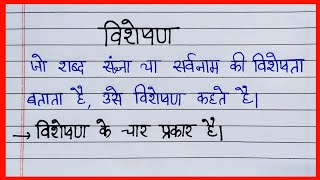 विशेषण
जो शब्द संज्ञा या सर्वनाम की विशेषता
बताता है, उसे विशेषण कहते है।
→ विशेषण के चार प्रकार है।